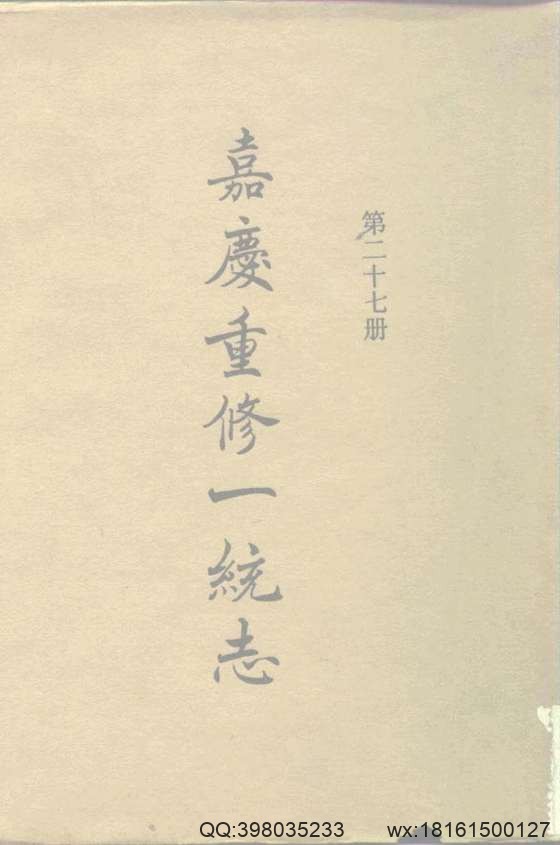 第二十七册
嘉慶重修一統志
QQ:398035233 wx:18161500127